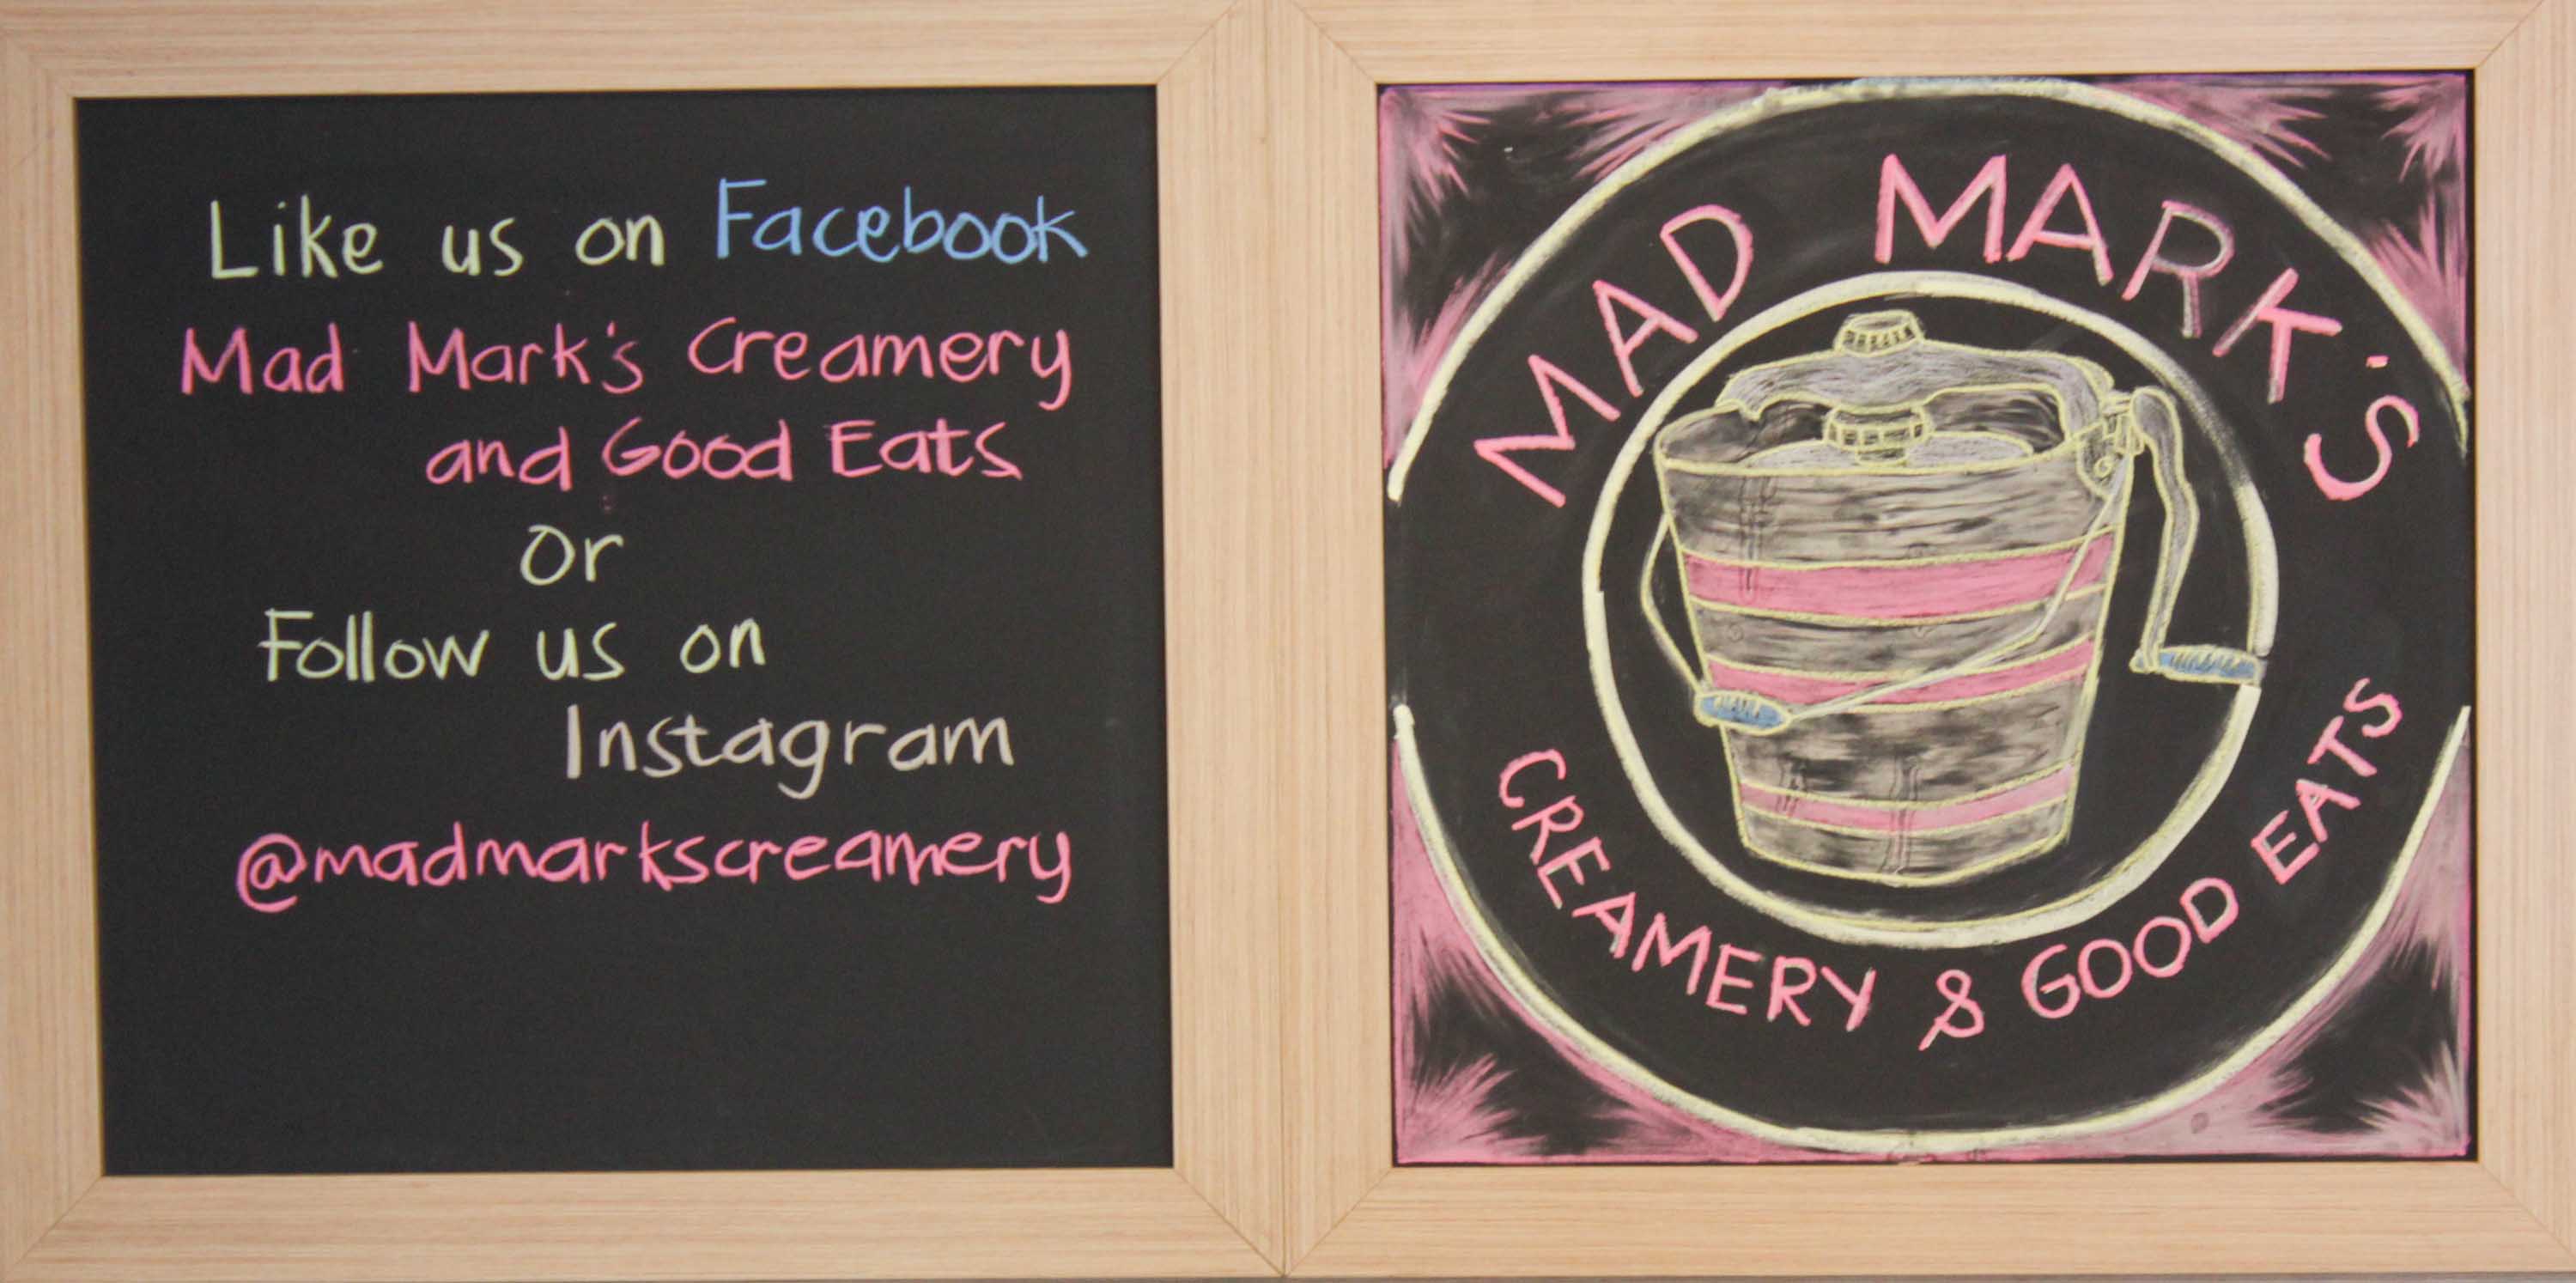 Like us on Facebook
Mad Mark's Creamery
and Good Eats
Or
Follow us on
Instagram
@madmarkscreamery
MAD MARK'S
CREAMERY & GOOD EATS